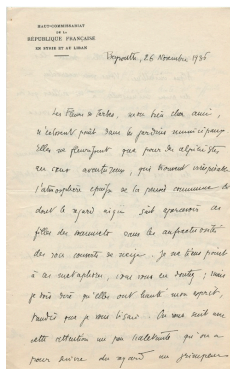 HAUT-COMMISSARIAT
DE LA
RÉPUBLIQUE FRANÇAISE
EN SYRIE ET AU LIBAN
Beyrouth, 26 Novembre 1936
Les Fleurs de Tarbes, mon très cher ami,
n'éclosent point dans les jardins municipaux
Elles ne fleurissent que pour des alpinistes
au cœur aventureux, qui trouvent irrespirable
l'atmosphère épaisse de la pensée commune et
dont le regard aigu sait apercevoir ces
filles des sommets sous les anfractuosités
des rocs couverts de neige. Je ne tiens point
à ces métaphores, vous vous en doutez ; mais
je dois dire qu'elles ont hanté mon esprit,
tandis que je vous lisais. On vous suit avec
cette attention un peu haletante qu'on a
pour suivre du regard un grimpeur